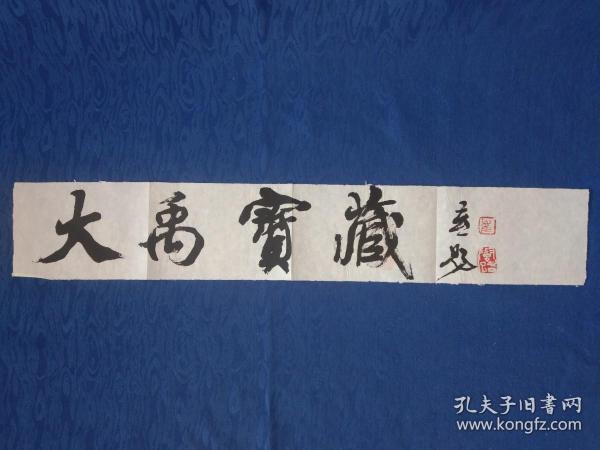 大禹寶藏
孔夫子旧書网
www.kongfz.com